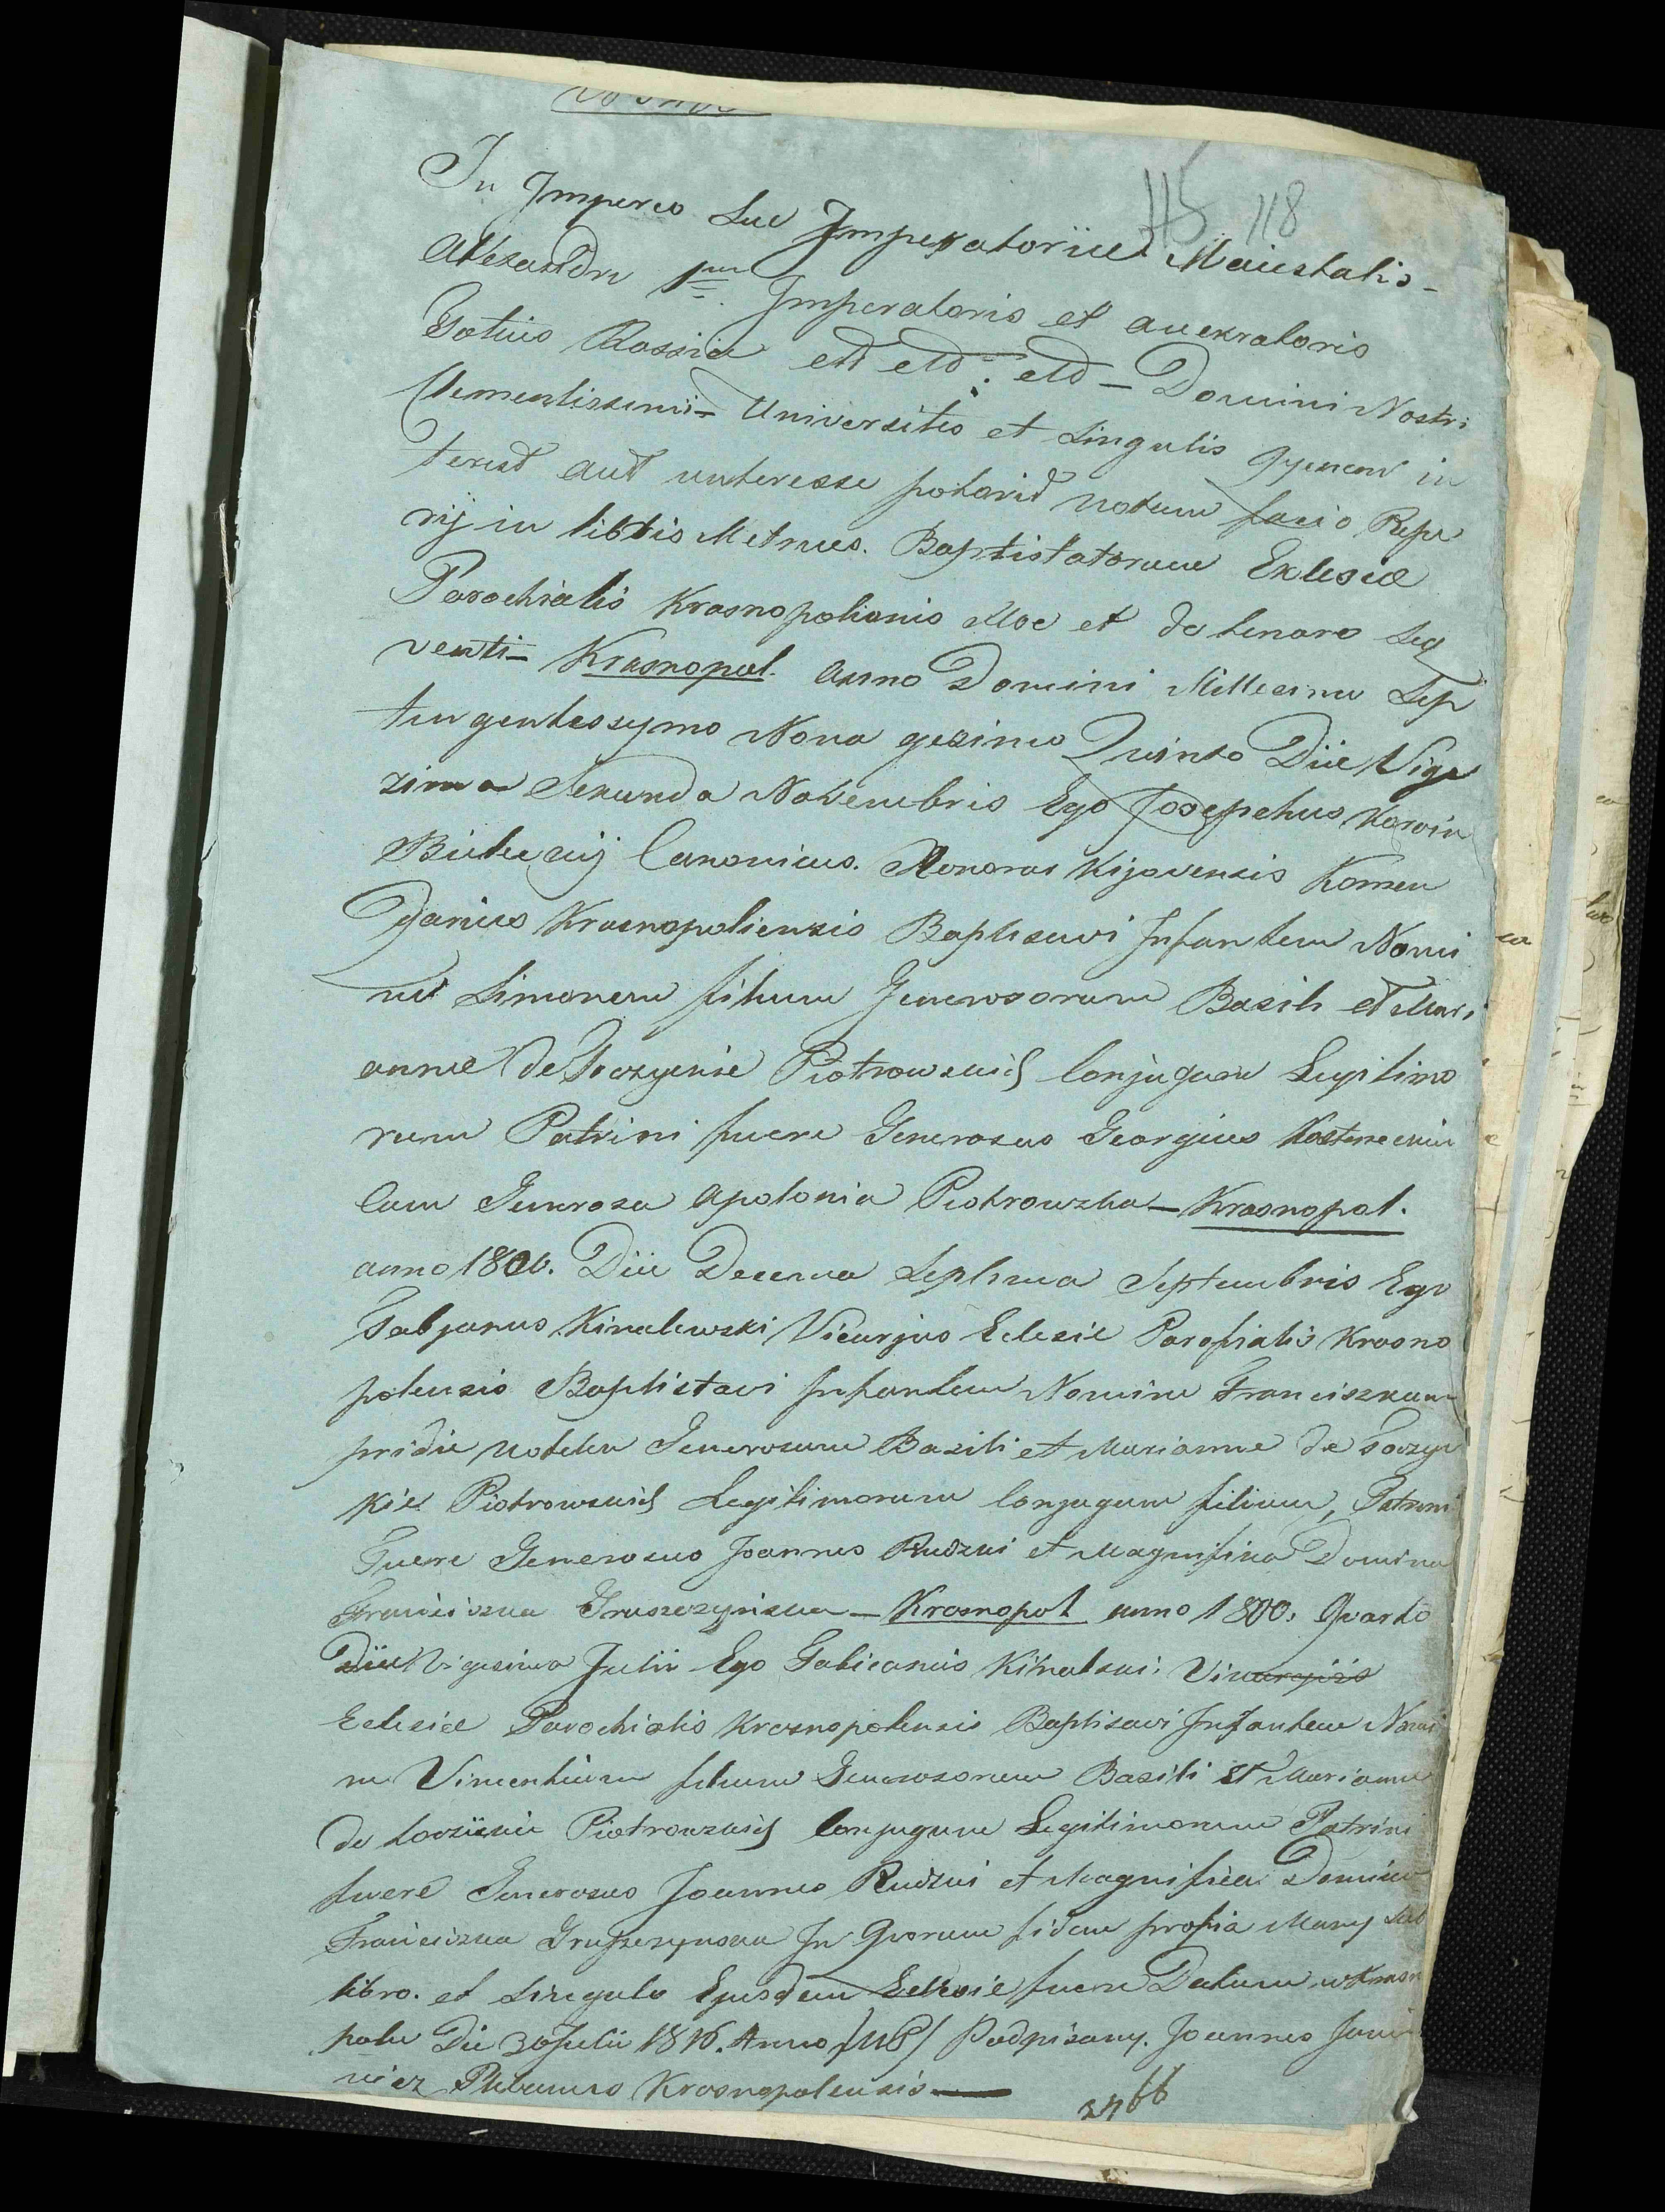 115 118
In Imperio Sue Imperatoriie Maiestatis-
Alexandri 1mi Imperatoris et auexratoris
Totius Rossia etd etd: etd - Domini Nostri
Clementissimi- Universitis et Singulis in
terest aut interesse poterid notum facio Repe
rij in libris Metrices. Baptistatorum Exlesiæ
Parochialis Krasnopolianis Hoc et de tenore Seq
venti- Krasnopol. anno Domini Millesimo Sep
tungentesymo Nona gezimo Quinto Diie Vige
zima Sekunda Novembris Ego Josephus Korvin
Canonicus. Honoras Kijoviensis Komen
Krasnopoliensis Baptisavi Infantem Nomi
ne Simonem filium Generosorum Basili et Mari
annæ de Piotrowskich Conjugum Legitimo
rum Patrini fuere Generosus Georgius
Cum Generosa Apolonia Piotrowska - Krasnopol.
anno 1801. Diie Decema Septima Septembris Ego
Fabjanus Kinalewski Vicarjus Eclesie Parofialis Krasno
polensis Baptistavi Infantem Nomine Franciszkum
pridie notelem Generosum Bazili et Marianne de Toczys
kie Piotrowskich Legitimorum Conjugum filium, Patrini
Fuere Generosus Joannes Rudzki et Magnifika Domina
Franciszka Gruszczynska - Krasnopol anno 1800. Quarto
Diie Vigesima Julii Ego Fabicanus Kinalski Vicargiis
Eclesiæ Parochialis Krasnopolensis Baptisavi Infantem Nomi
ne Vincentium filium Generosorum Basili et Marianne
de Piotrowskich Conjugum Legitimorum Patrini
fuere Generosus Joannes Rudzki et Magnifica Domina
Franciszka Gruszczynska In Quorum fidem propia Many Sub
libro. et Singulo Ejusdem Eclesie Datum w Krasno
polu Die 30 Julii 1816. Anno /MP/ Podpisany. Joannes
wicz Plebanus Krasnopolensis —